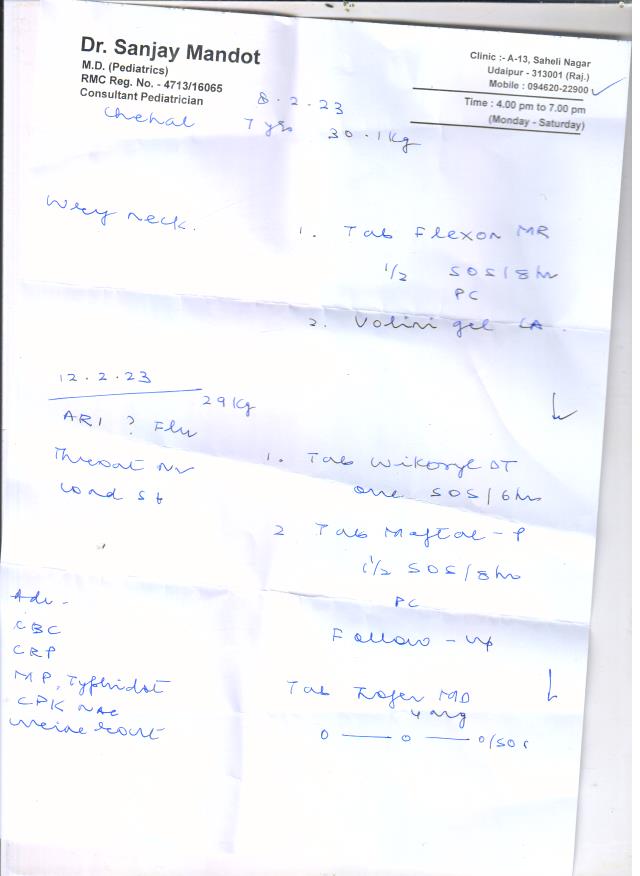 Dr. Sanjay Mandot
M.D. (Pediatrics)
RMC Reg. No. - 4713/16065
Consultant Pediatrician
Clinic :- A-13, Saheli Nagar
Udaipur - 313001 (Raj.)
Mobile : 094620-22900
Time : 4.00 pm to 7.00 pm
(Monday - Saturday)
8.2.23
Chehal 7 yrs 30.1 kg
Wry neck.
1. Tab Flexon MR
1/2 SOS/8hr
PC
2. Volini gel LA.
12.2.23
29 Kg
ARI ? Flu
Throat
1. Tab Wikoryl DT
one SOS/6hr
2 Tab Meftal-P
1 1/2 SOS/8hr
PC
Adv-
CBC
CRP
MP, Typhidot
CPK NAC
Urine
Follow-up
Tab MD
4 mg
0 — 0 — 0/SOS